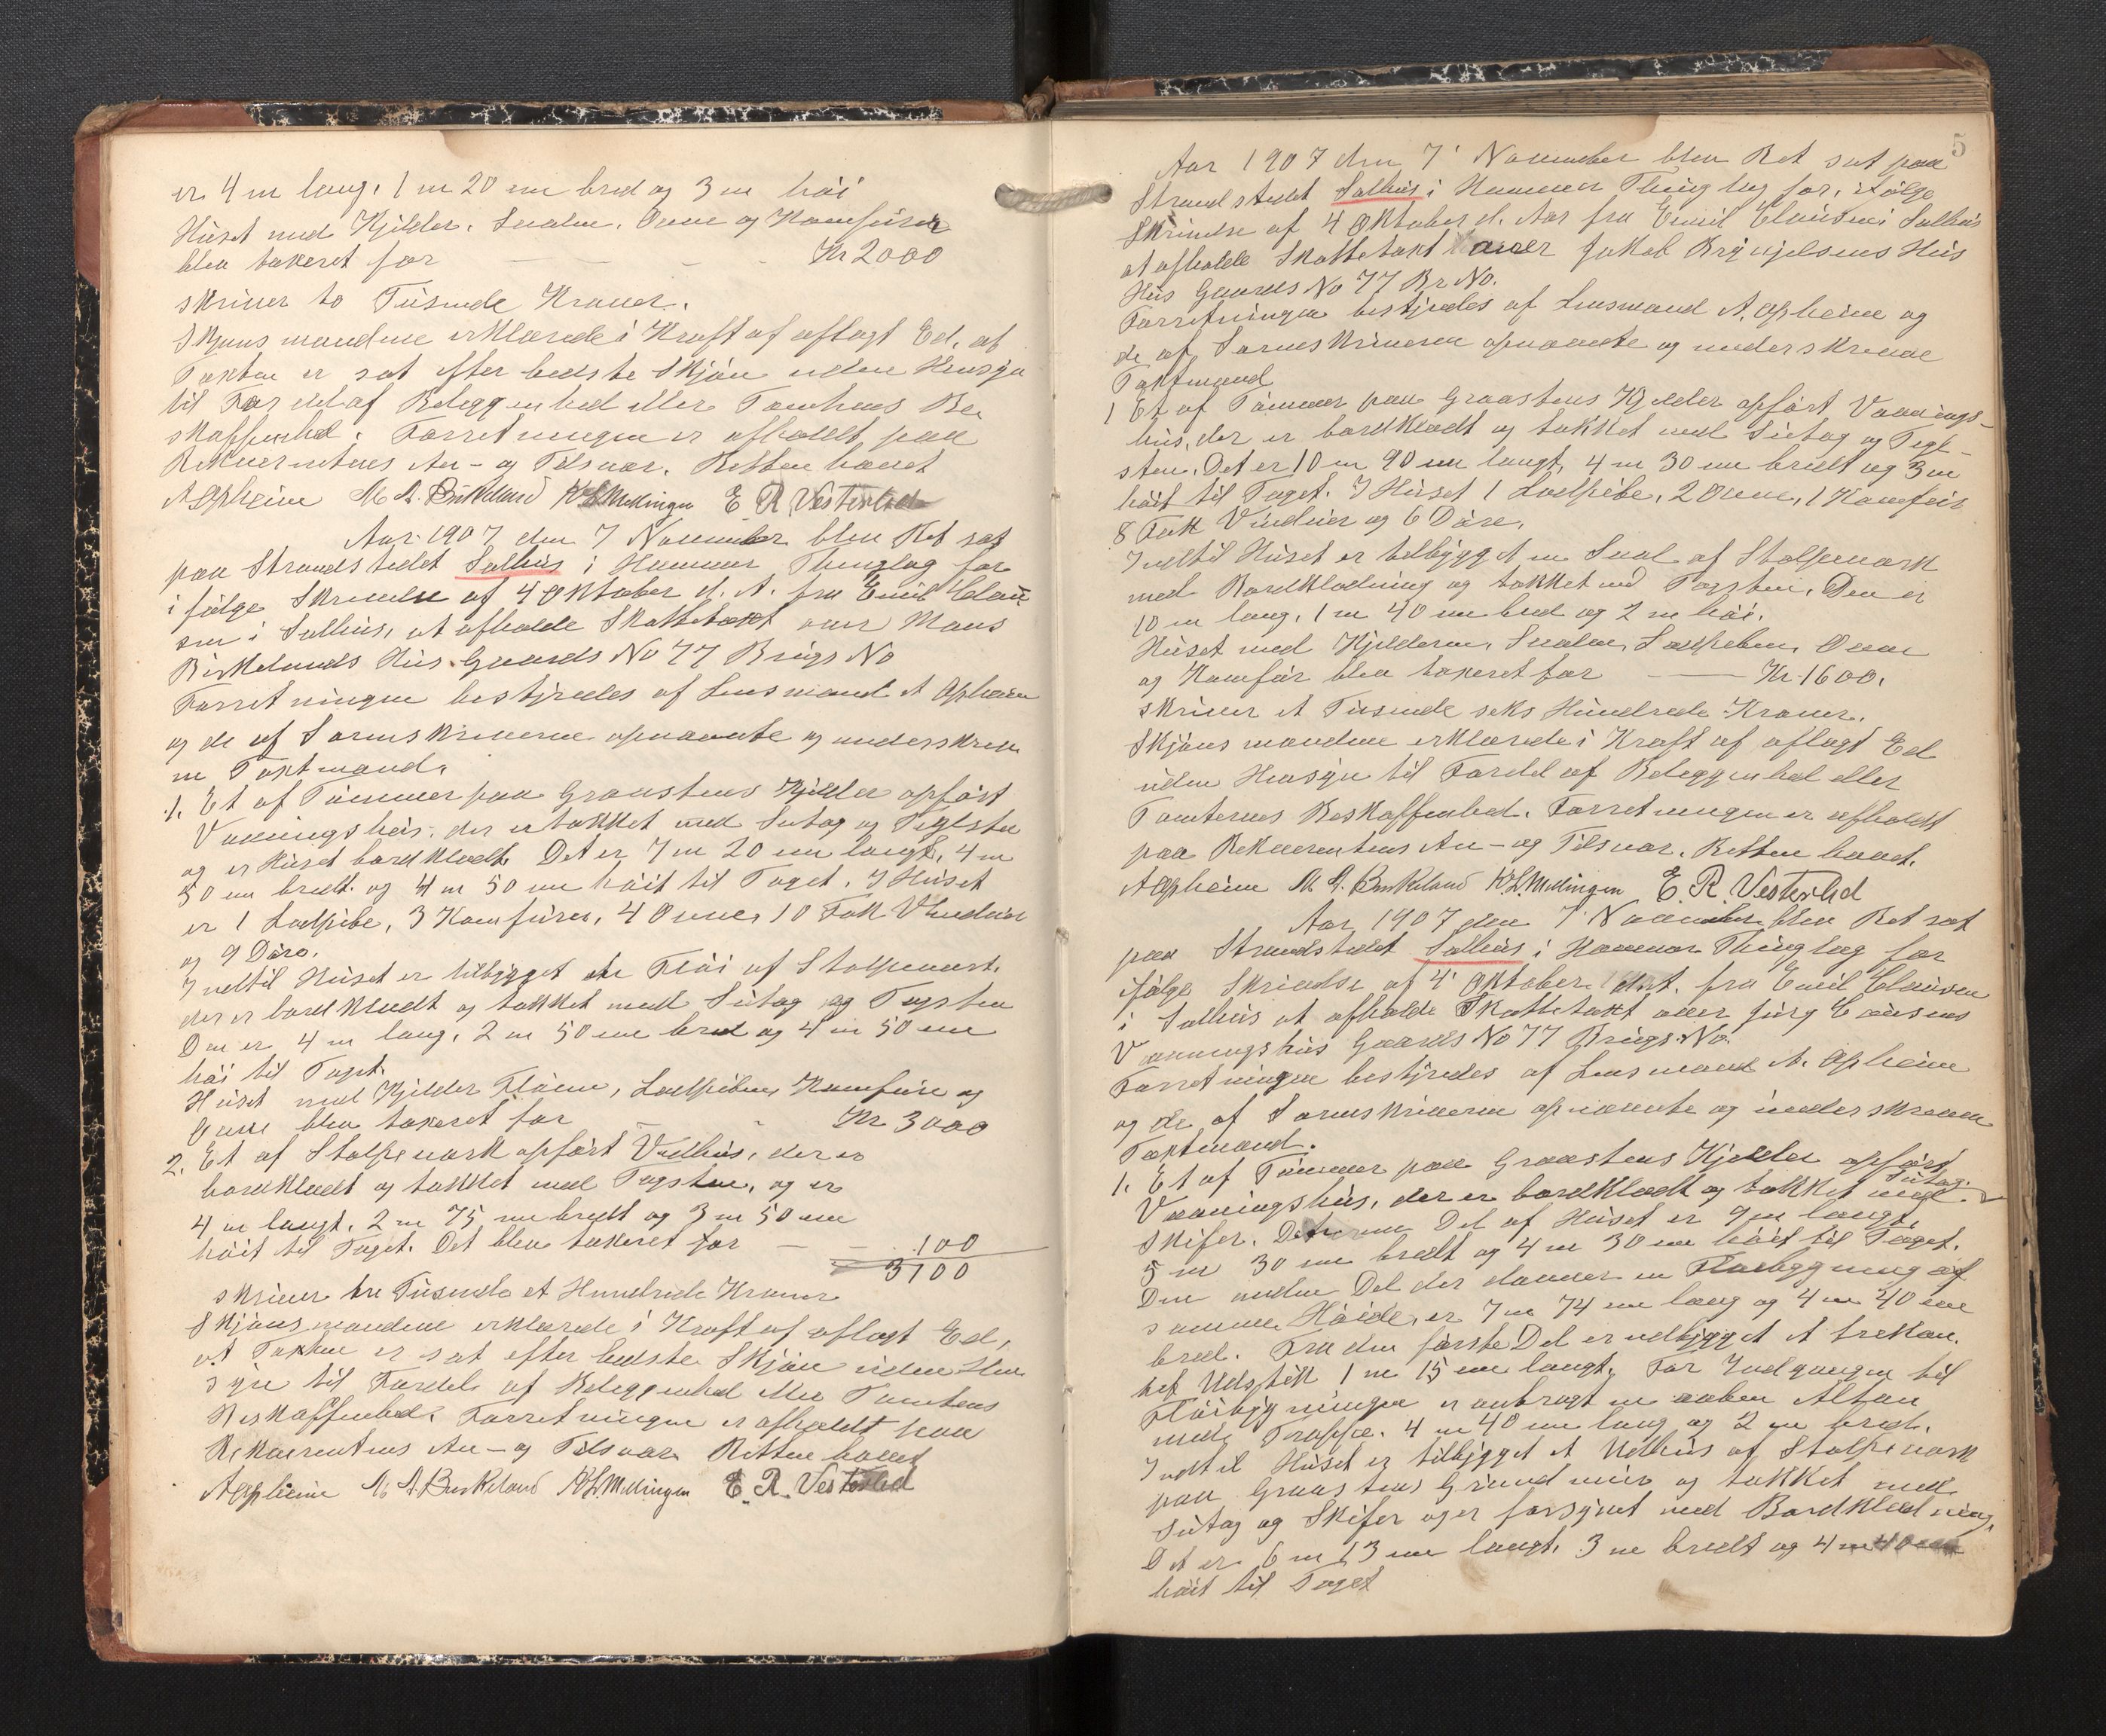 er 4 m lang, 1 m 20 cm bred og 3 m höi
Huset med Kjelder, Svalen, Ovne og Komfurer
blev taxeret for — — — Kr 2000
skriver to Tusinde Kroner.
Skjönsmændene erklærede i Kraft af aflagt Ed, at
Taxten er sat efter bedste Skjön uden Hensyn
til Fordel af Beleggenhed eller Tomtens Be
skaffenhed. Forretningen er afholdt paa
Rekvirentens An- og Tilsvar. Retten hævet
A Opheim M. A. Birkeland K L Mellingen E R Vesterlid
Aar 1907 den 7 November blev Ret sat
paa Strandstedet Salhus i Hammer Thinglag for
i fölge Skrivelse af 4 Oktober d. A. fra Emil Clau
sen i Salhus, at afholde Skattetaxt over Mons
Birkelands Hus Gaards No 77 Brugs No
Forretningen bestyredes af Lensmand A Opheim
og de af Sorenskriveren opnævnte og underskrev
ne Taxtmænd.
1. Et af Tömmer paa Graastens Kjelder opfört
Vaaningshus, der er tækket med Sutag og Teglsten
og er Huset bordklædt. Det er 7 m 20 cm langt, 4 m
50 cm bredt og 4 m 50 cm höit til Taget. I Huset
er 1 Ladpibe, 3 Komfurer, 4 Ovne, 10 Fak Vinduer
og 9 Döre.
Indtil Huset er tilbygget en Flöi af Stolpeverk.
der er bordklædt og tækket med Sutag og Tagsten
Den er 4 m lang, 2 m 50 cm bred og 4 m 50 cm
höi til Taget.
Huset med Kjelder Flöien, Ladpiben, Komfure og
Ovne blev taxeret for — - Kr 3000
2. Et af Stolpeverk opfört Vedhus, der er
bordklædt og tækket med Tagsten, og er
4 m langt, 2 m 75 cm bredt og 3 m 50 cm
höit til Taget. Det blev taxeret for — — 100
3100
skriver tre Tusinde et Hundrede Kroner
Skjönsmændene erklærede i Kraft af aflagt Ed,
at Taxten er sat efter bedste Skjön uden Hen
syn til Fordel af Beleggenhed eller Tomtens
Beskaffenhed. Forretningen er afholdt paa
Rekvirentens An- og Tilsvar Retten hævet
A Opheim M. A. Birkeland K L Mellingen E. R. Vesterlid
5
Aar 1907 den 7' November blev Ret sat paa
Strandstedet Salhus i Hammer Thinglag for, ifölge
Skrivelse af 4 Oktober d. Aar fra Emil Clausen i Salhus
at afholde Skattetaxt over Jakob Brynjelsens Hus
Hus Gaards No 77 Br No.
Forretningen bestyredes af Lensmand A. Opheim og
de af Sorenskriveren opnævnte og underskrevne
Taxtmænd
1 Et af Tömmer paa Graastens Kjelder opfört Vaanings-
hus, der er bordklædt og tækket med Sutag og Tegl-
sten. Det er 10 m 90 cm langt, 4 m 30 cm bredt og 3 m
höit til Taget. I Huset 1 Ladpibe, 2 Ovne, 1 Komfur
8 Fak Vinduer og 6 Döre.
Indtil Huset er tilbygget en Sval af Stolpeverk
med Bordklædning og tækket med Tagsten. Den er
10 m lang, 1 m 40 cm bred og 2 m höi.
Huset med Kjelderen, Svalen, Ladpiben, Ovne
og Komfur blev taxeret for — Kr. 1600.
skriver et Tusinde seks Hundrede Kroner.
Skjönsmændene erklærede i Kraft af aflagt Ed
uden Hensyn til Fordel af Beleggenhed eller
Tomternes Beskaffenhed. Forretningen er afholdt
paa Rekvirentens An- og Tilsvar. Retten hævet.
A Opheim M. A. Birkeland K. L. Mellingen E. R. Vesterlid
Aar 1907 den 7' November blev Ret sat
paa Strandstedet Salhus i Hammer Thinglag for
ifölge Skrivelse af 4' Oktober d. A. fra Emil Clausen
i Salhus at afholde Skattetaxt over Jörg Clausens
Vaaningshus Gaards No 77 Brugs No.
Forretningen bestyredes af Lensmand A. Opheim
og de af Sorenskriveren opnævnte og underskrevne
Taxtmænd.
1. Et af Tömmer paa Graastens Kjelder opfört
Vaaningshus, der er bordklædt og tækket med Sutag.
Skifer. Den ene Del af Huset er 9 m langt,
5 m 30 cm bredt og 4 m 30 cm höit til Taget.
Den anden Del der danner en Flöibygning af
samme Höide, er 7 m 74 cm lang og 4 m 40 cm
bred. Fra den förste Del er udbygget et trekan.
tet Udstik 1 m 15 cm langt. For Indgangen til
Flöibygningen er anbragt en aaben Altan
med Trappe. 4 m 40 cm lang og 2 m bred.
Indtil Huset er tilbygget et Udhus af Stolpeverk
paa Graastens Grundmur og tækket med
Sutag og Skifer og er forsynet med Bordklædning.
Det er 6 m 13 cm langt, 3 m bredt og 4 m 40 cm
höit til Taget